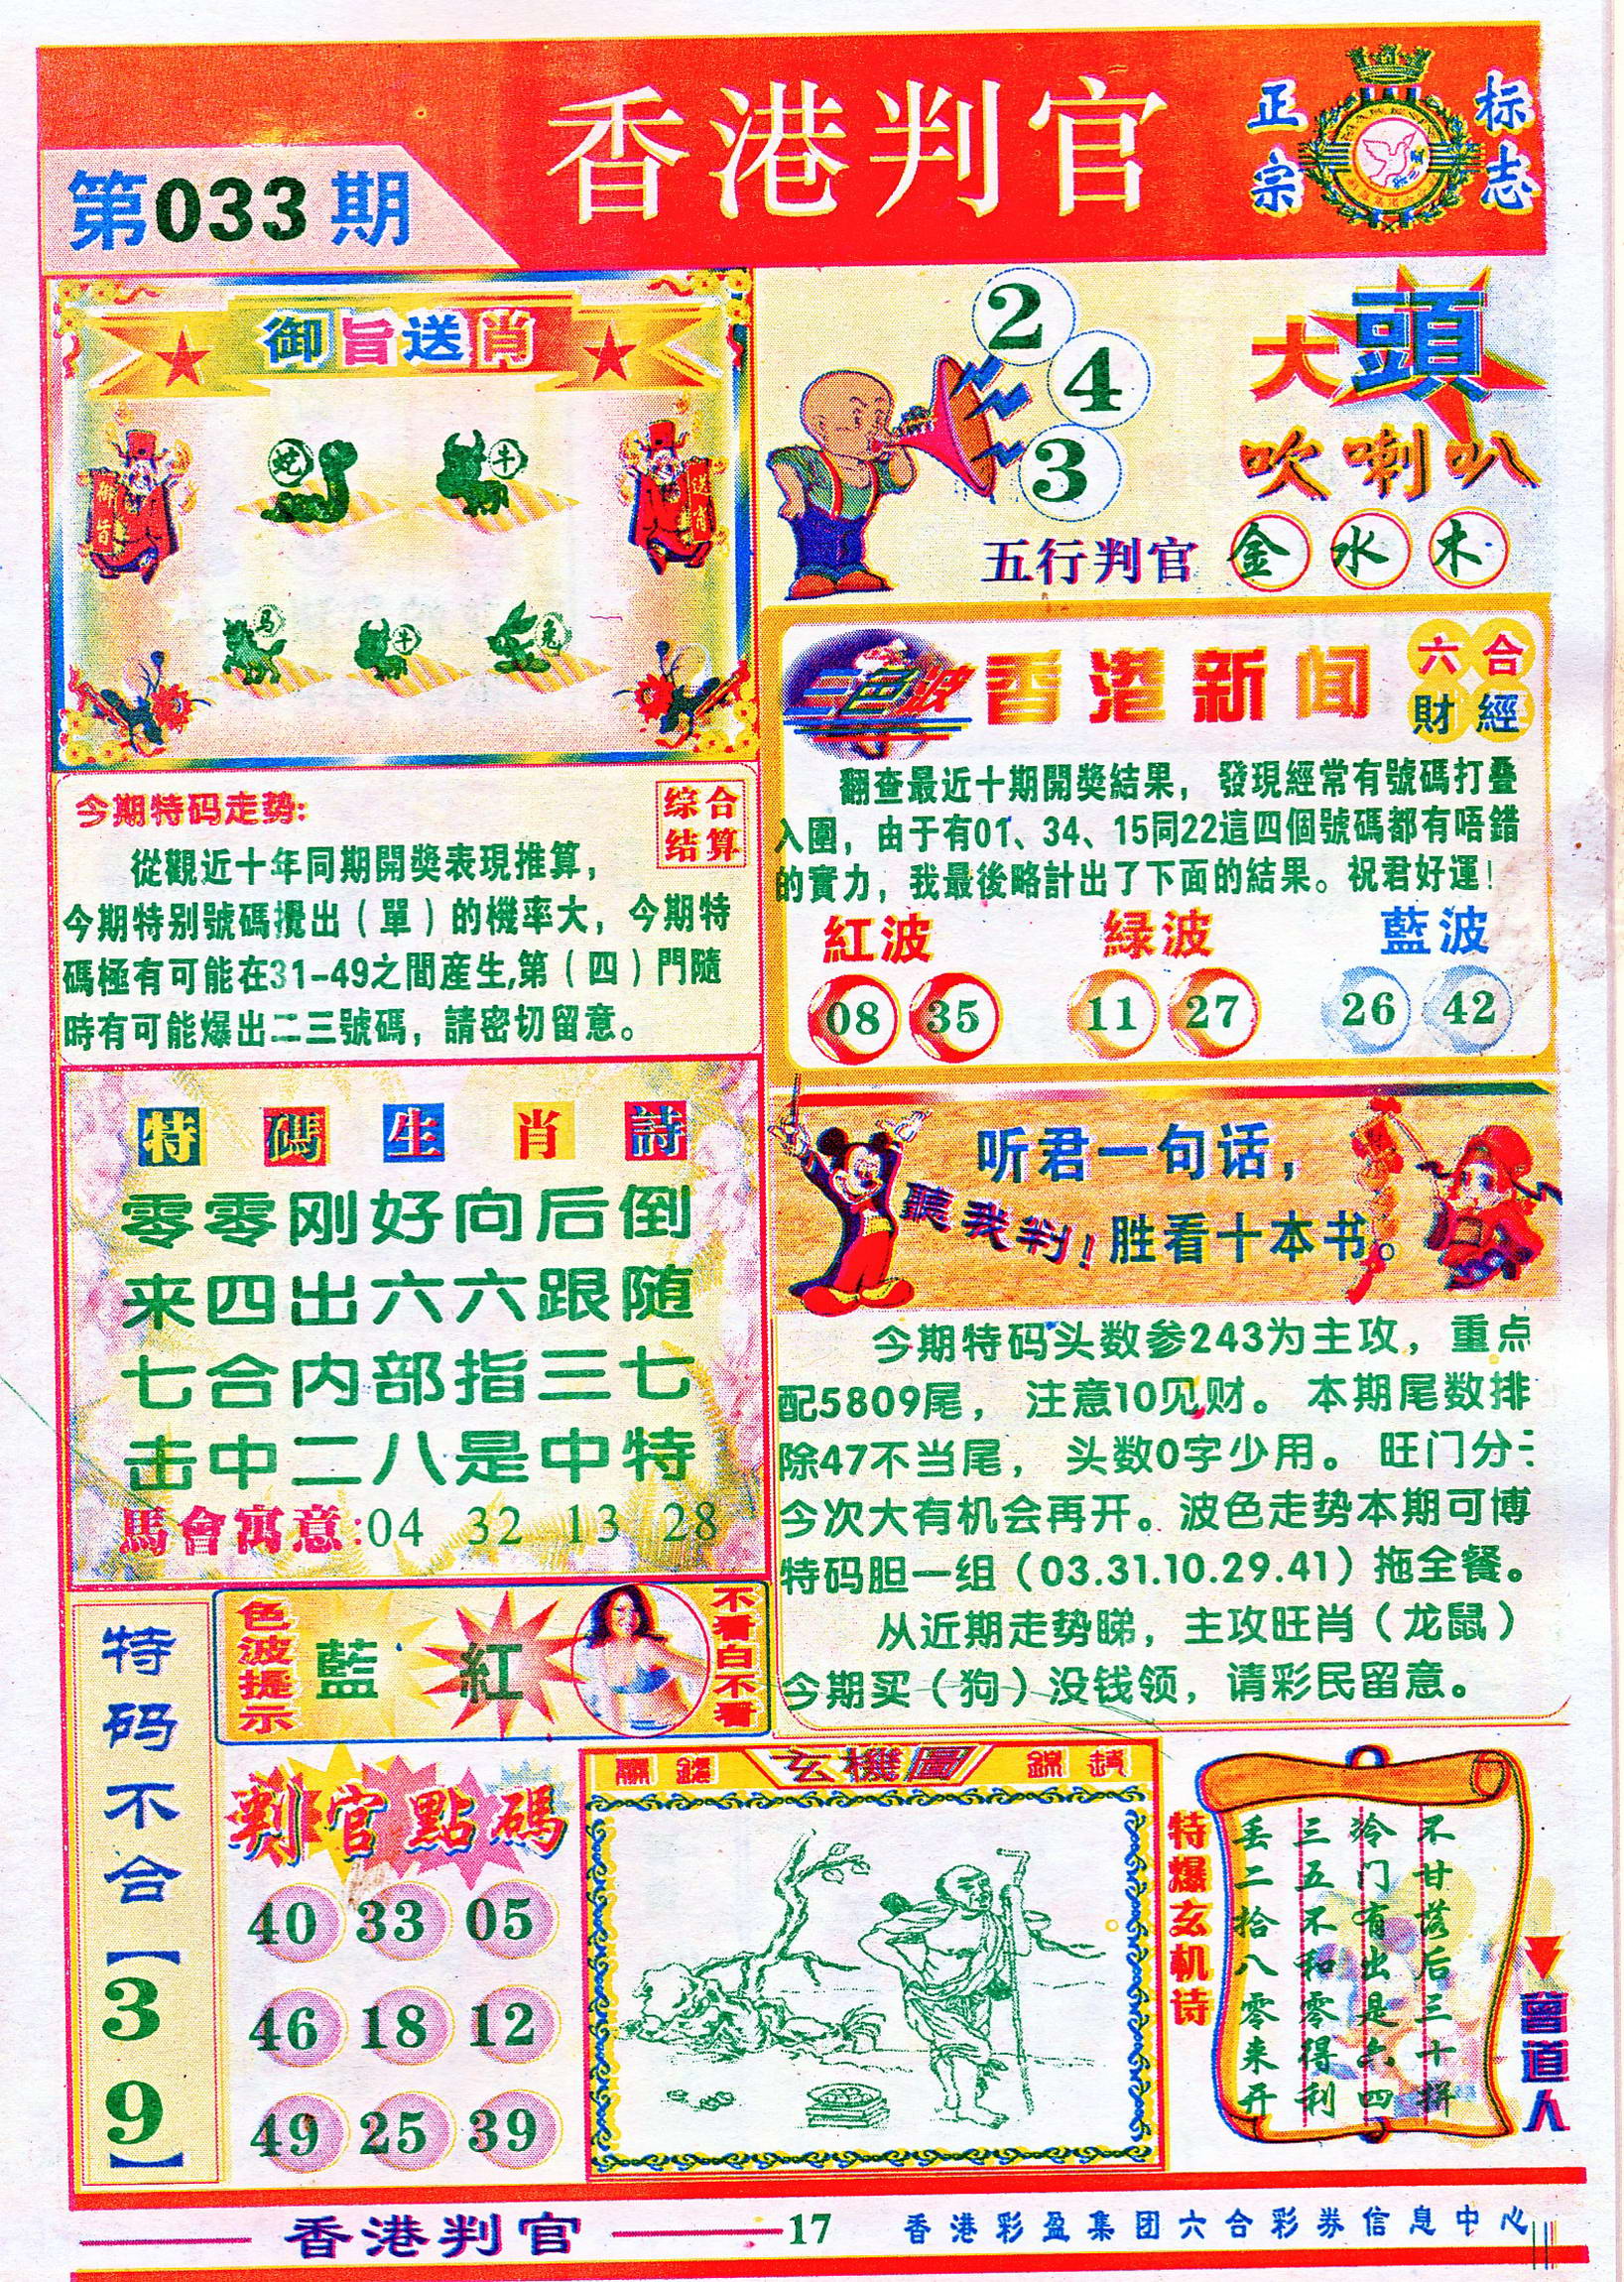 香港判官
正宗
标志
第033期
御旨送肖
御旨
送肖
蛇
牛
马
牛
兔
2
4
3
大頭
吹喇叭
五行判官 金 水 木
今期特码走势:
综合
结算
從觀近十年同期開獎表現推算，
今期特别號碼攪出（單）的機率大，今期特
碼極有可能在31-49之間産生,第（四）門隨
時有可能爆出二三號碼，請密切留意。
三色波
香港新闻
六合
財經
翻查最近十期開獎結果，發現經常有號碼打叠
入圍，由于有01、34、15同22這四個號碼都有唔錯
的實力，我最後略計出了下面的結果。祝君好運！
紅波 緑波 藍波
08 35 11 27 26 42
特碼生肖詩
零零刚好向后倒
来四出六六跟随
七合内部指三七
击中二八是中特
馬會寓意:04 32 13 28
听君一句话，
聽我判！
胜看十本书。
今期特码头数参243为主攻，重点
配5809尾，注意10见财。本期尾数排
除47不当尾，头数0字少用。旺门分
今次大有机会再开。波色走势本期可博
特码胆一组（03.31.10.29.41）拖全餐。
从近期走势睇，主攻旺肖（龙鼠）
今期买（狗）没钱领，请彩民留意。
特码不合【39】
色波提示
藍 紅
不看白不看
判官點碼
40 33 05
46 18 12
49 25 39
玄機圖
特爆玄机诗
不甘落后三十拼
冷门有出是六四
三五不和零得利
丢二拾八零来开
曾道人
香港判官
17
香港彩盈集团六合彩券信息中心